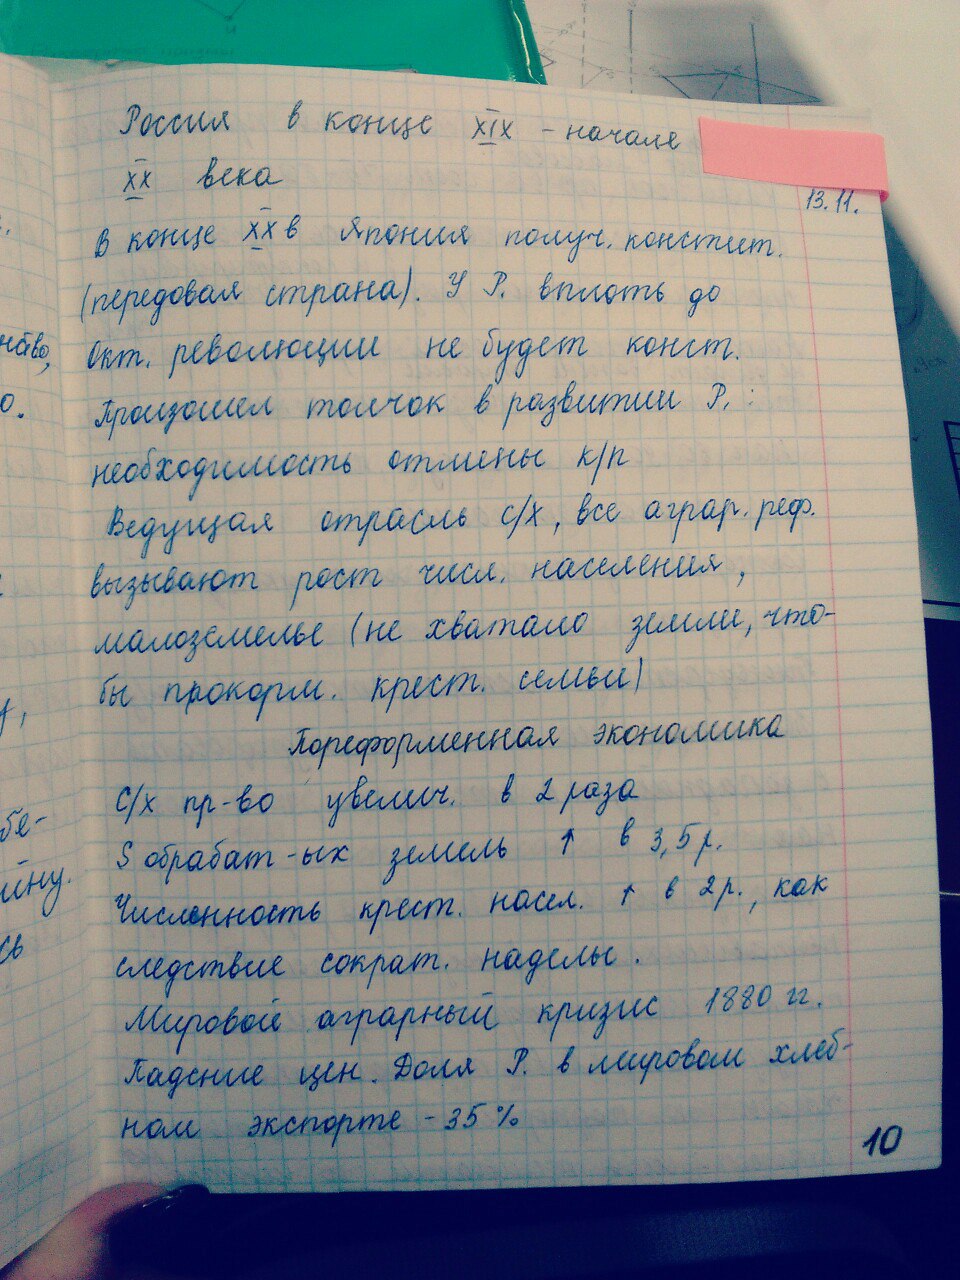 Россия в конце XIX - начале
XX века
13.11.
В конце XX в Япония получ. констит.
(передовая страна). У Р. вплоть до
Окт. революции не будет конст.
Произошел толчок в развитии Р. :
необходимость отмены к/п
Ведущая отрасль с/х, все аграр. реф.
вызывают рост числ. населения,
малоземелье (не хватало земли, что-
бы прокорм. крест. семьи)
Пореформенная экономика
С/х пр-во увелич. в 2 раза
S обрабат-ых земель ↑ в 3,5 р.
Численность крест. насел. ↑ в 2 р., как
следствие сократ. наделы.
Мировой аграрный кризис 1880 гг.
Падение цен. Доля Р. в мировом хлеб-
ном экспорте - 35 %
10